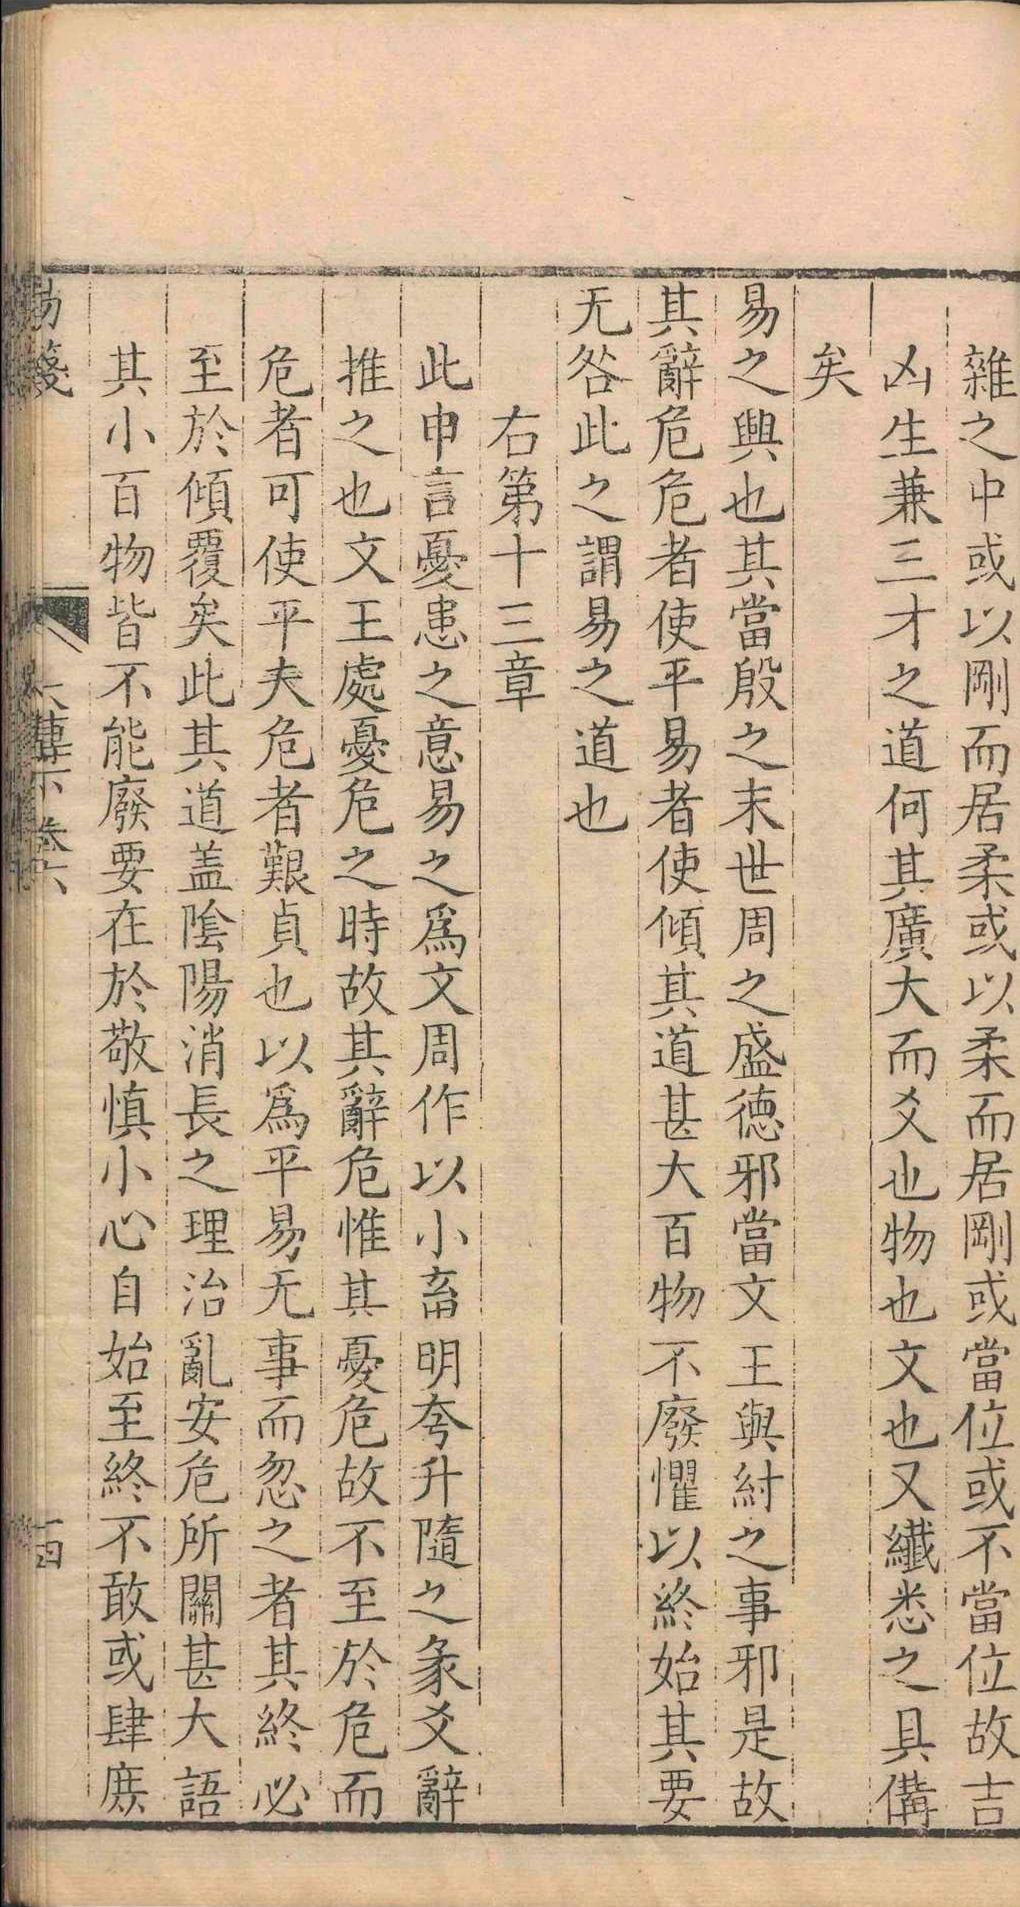 雜之中或以剛而居柔或以柔而居剛或當位或不當位故吉
凶生兼三才之道何其廣大而爻也物也文也又纖悉之具備
矣
易之興也其當殷之末世周之盛德邪當文王與紂之事邪是故
其辭危危者使平易者使傾其道甚大百物不廢懼以終始其要
无咎此之謂易之道也
右第十三章
此申言憂患之意易之爲文周作以小畜明夸升隨之彖爻辭
推之也文王處憂危之時故其辭危惟其憂危故不至於危而
危者可使平夫危者艱貞也以爲平易无事而忽之者其終必
至於傾覆矣此其道盖陰陽消長之理治亂安危所關甚大語
其小百物皆不能廢要在於敬慎小心自始至終不敢或肆庶
易箋 大傳下 卷六 十四